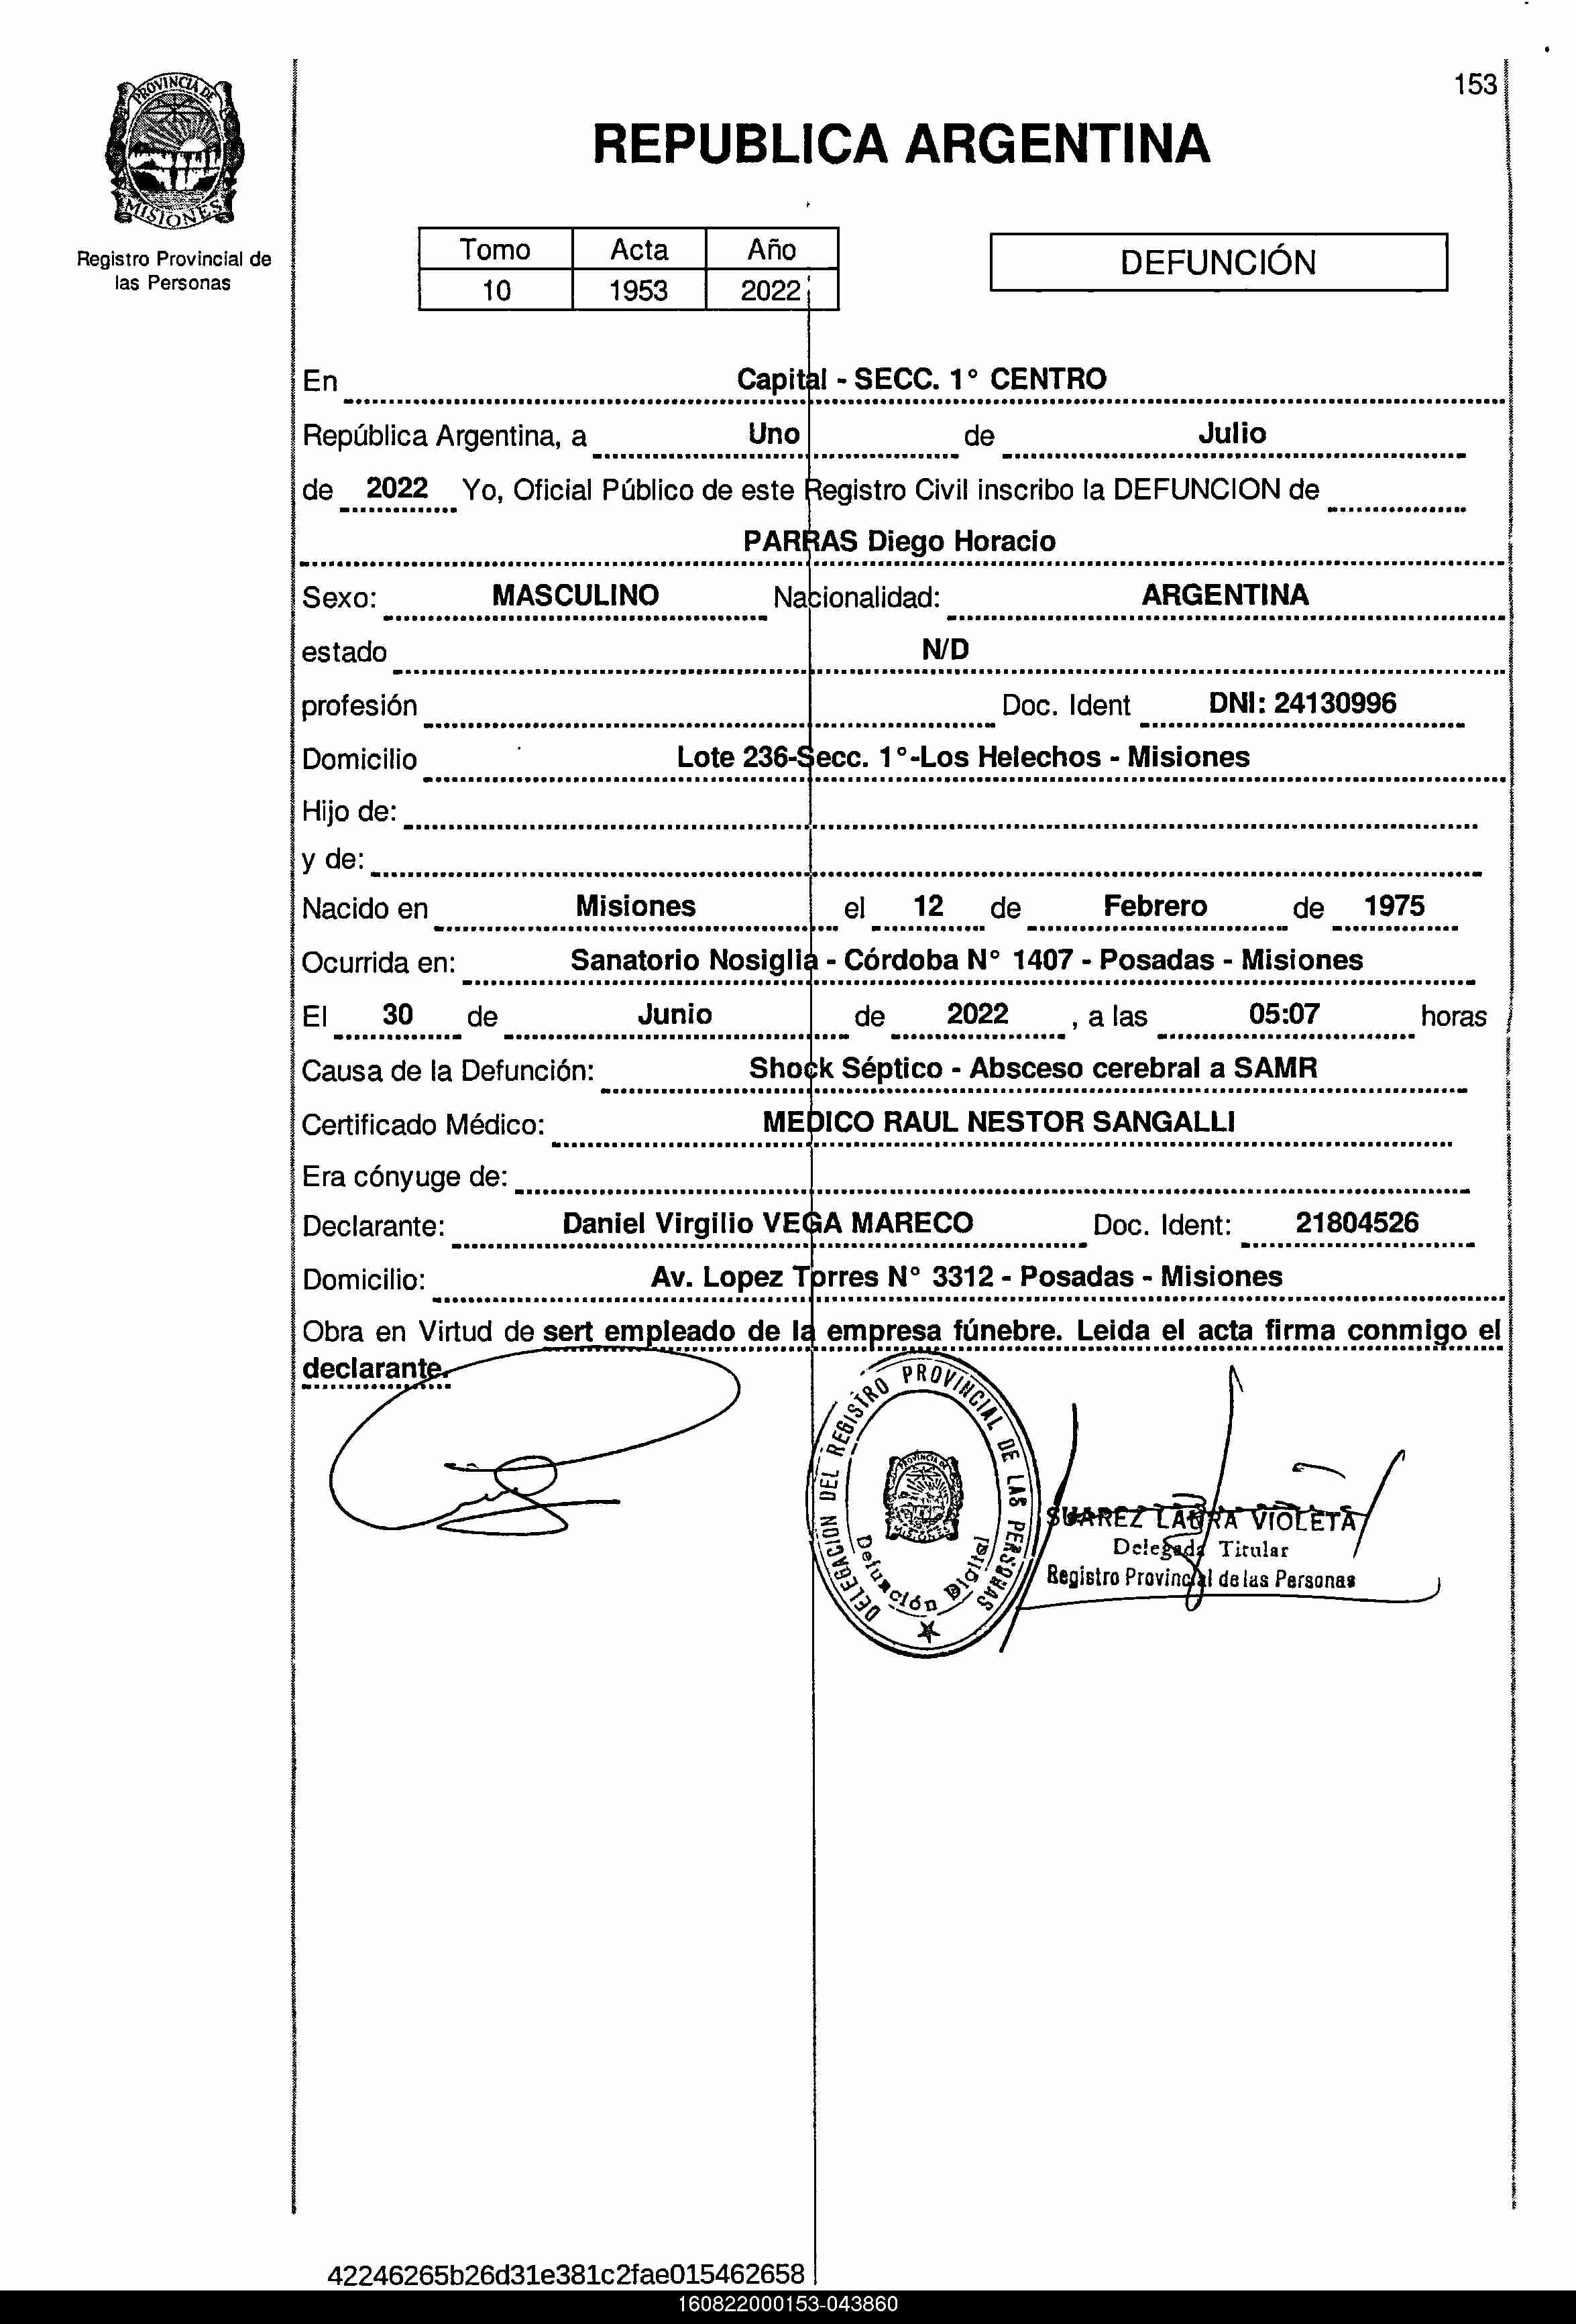 153
PROVINCIA DE
MISIONES
Registro Provincial de
las Personas
REPUBLICA ARGENTINA
Tomo Acta Año
10 1953 2022
DEFUNCIÓN
En Capital - SECC. 1° CENTRO
República Argentina, a Uno de Julio
de 2022 Yo, Oficial Público de este Registro Civil inscribo la DEFUNCION de
PARRAS Diego Horacio
Sexo: MASCULINO Nacionalidad: ARGENTINA
estado N/D
profesión Doc. Ident DNI: 24130996
Domicilio Lote 236-Secc. 1°-Los Helechos - Misiones
Hijo de:
y de:
Nacido en Misiones el 12 de Febrero de 1975
Ocurrida en: Sanatorio Nosiglia - Córdoba N° 1407 - Posadas - Misiones
El 30 de Junio de 2022 , a las 05:07 horas
Causa de la Defunción: Shock Séptico - Absceso cerebral a SAMR
Certificado Médico: MEDICO RAUL NESTOR SANGALLI
Era cónyuge de:
Declarante: Daniel Virgilio VEGA MARECO Doc. Ident: 21804526
Domicilio: Av. Lopez Torres N° 3312 - Posadas - Misiones
Obra en Virtud de sert empleado de la empresa fúnebre. Leida el acta firma conmigo el
declarante.
DELEGACION DEL REGISTRO PROVINCIAL DE LAS PERSONAS
PROVINCIA DE
MISIONES
Defunción Digital
SUAREZ LAURA VIOLETA
Delegada Titular
Registro Provincial de las Personas
42246265b26d31e381c2fae015462658
160822000153-043860